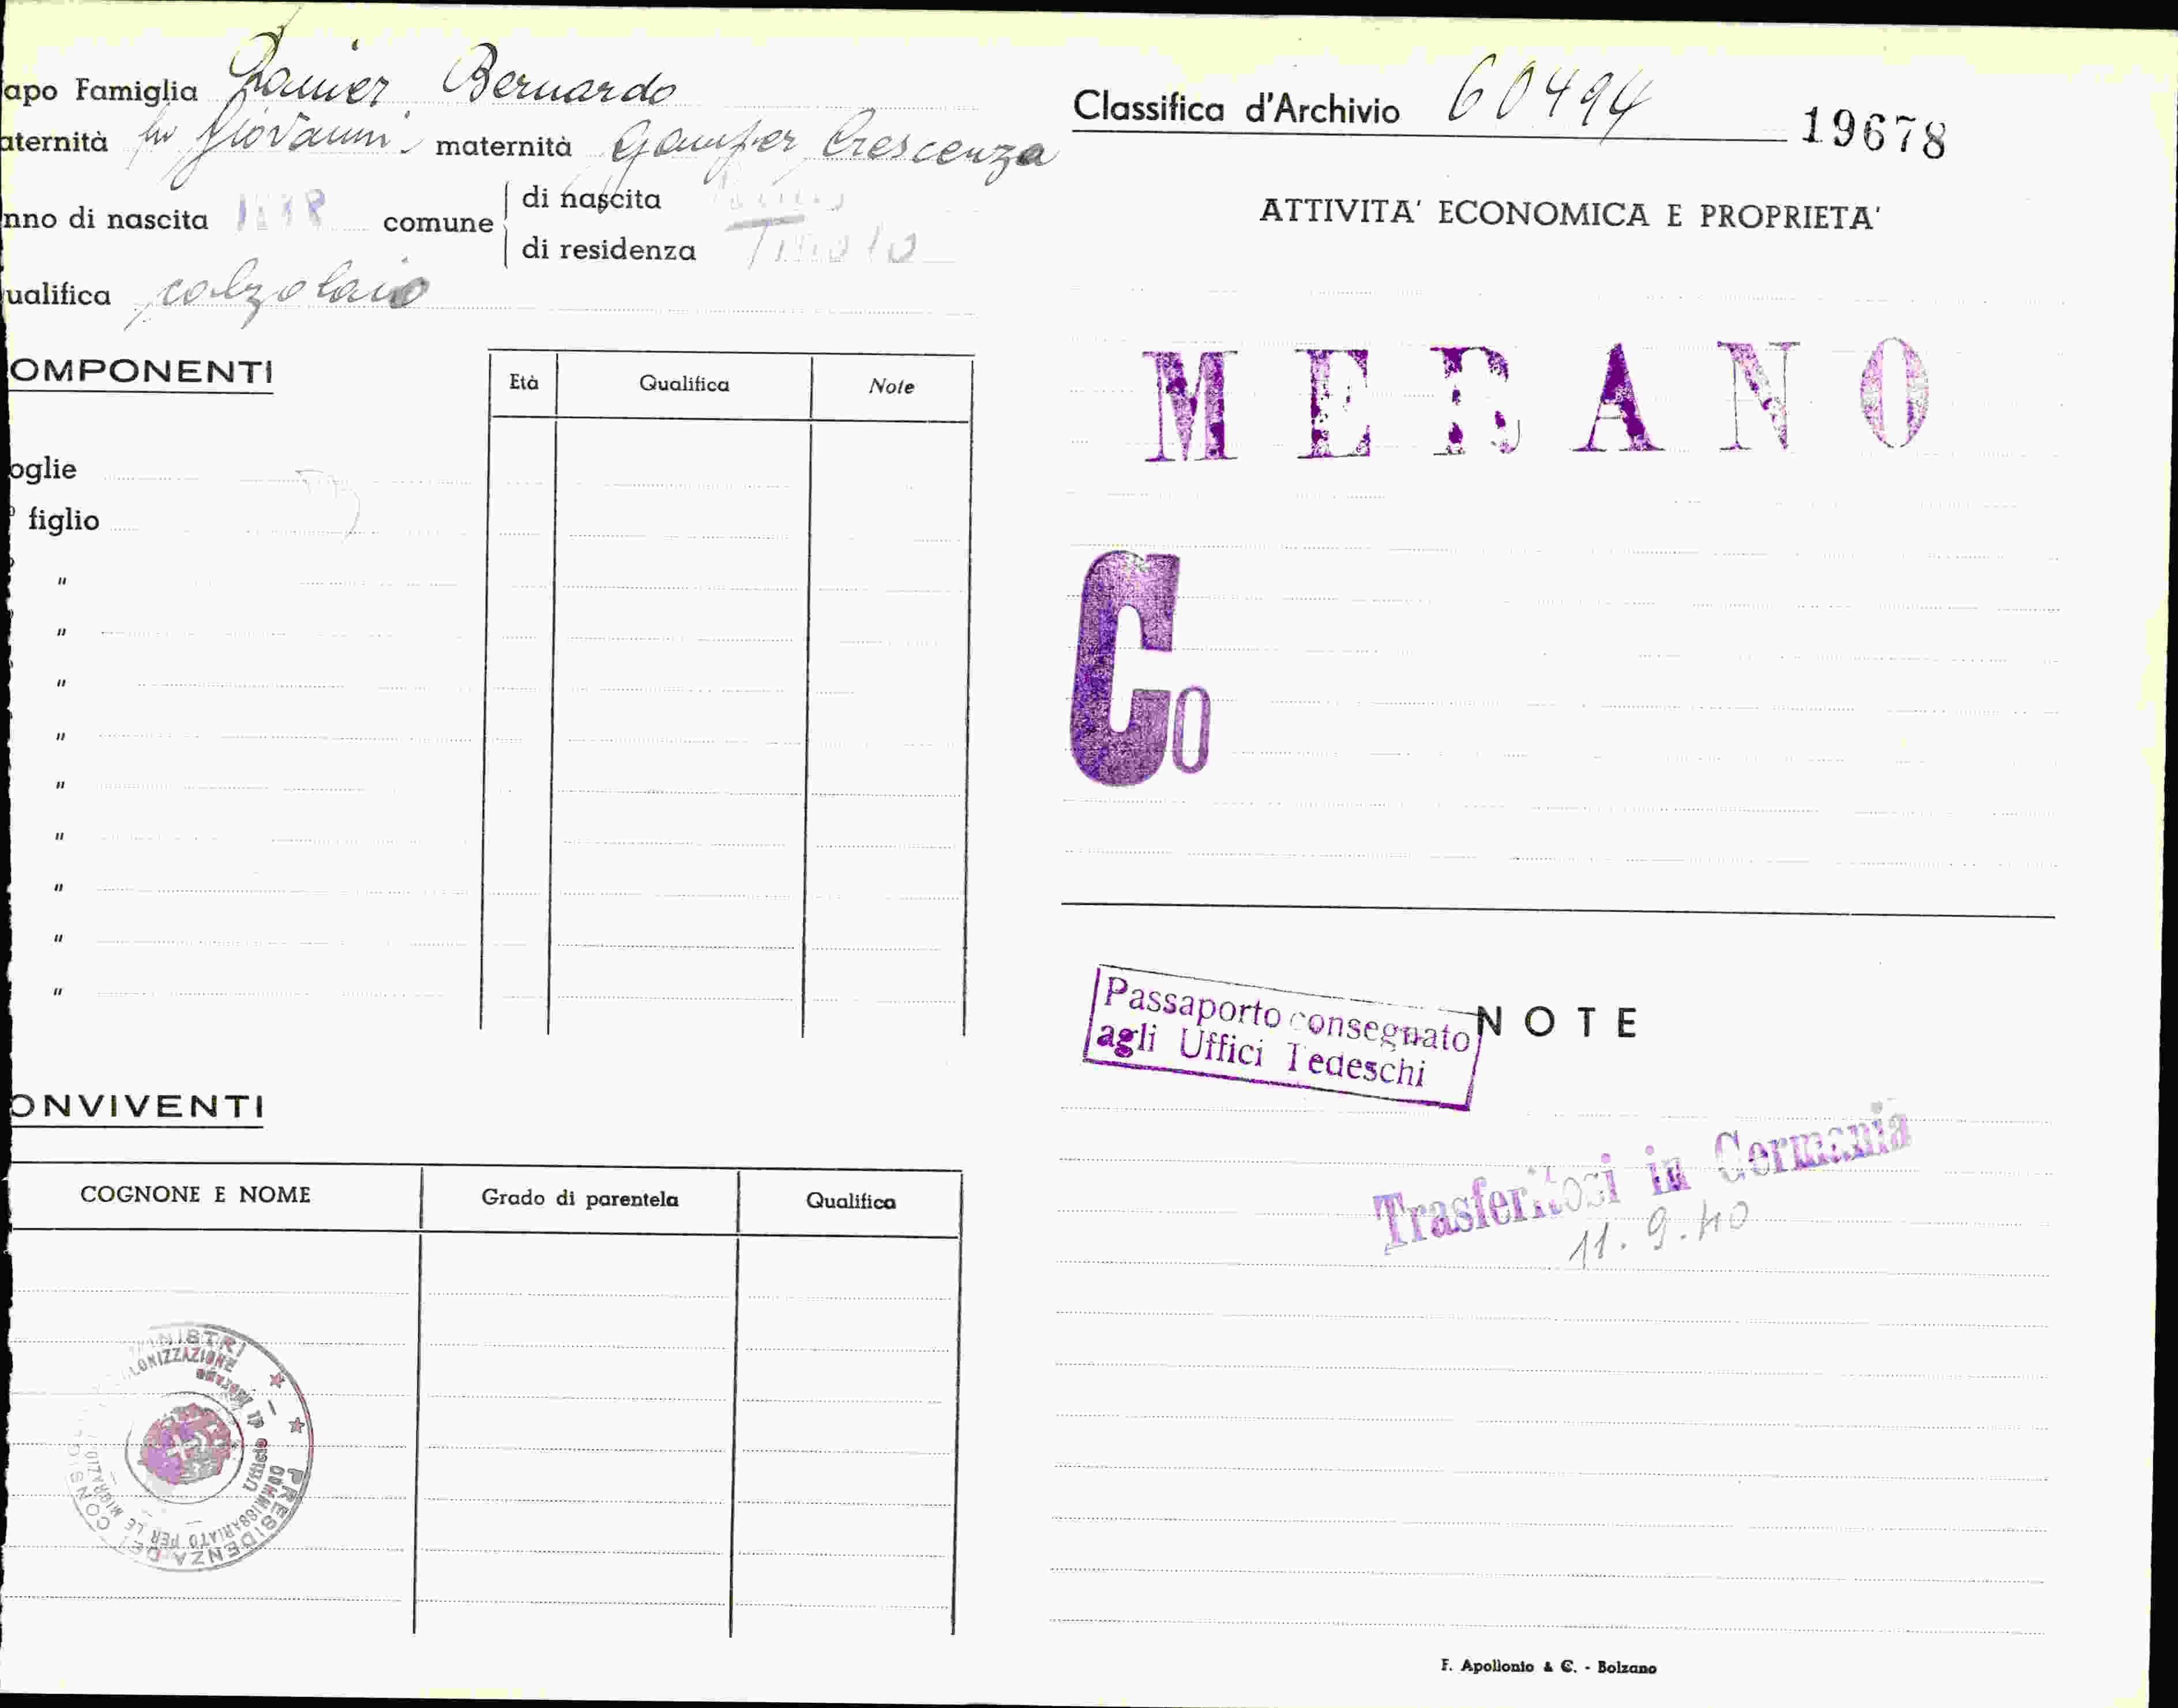 apo Famiglia Bernardo
aternità fu Giovanni maternità Gamper Crescenza
nno di nascita comune di nascita
di residenza Tirolo
ualifica calzolaio
OMPONENTI
Età Qualifica Note
oglie
figlio
"
"
"
"
"
"
"
"
"
ONVIVENTI
COGNONE E NOME Grado di parentela Qualifica
PRESIDENZA DEL CON MINISTRI
COMMISSARIATO PER LE MIGRAZIO LONIZZAZIONE
Ufficio di
Classifica d'Archivio 60494 19678
ATTIVITA' ECONOMICA E PROPRIETA'
MERANO
Co
NOTE
Passaporto consegnato
agli Uffici Tedeschi
Trasferitosi in Germania
11.9.40
F. Apollonio & C. - Bolzano